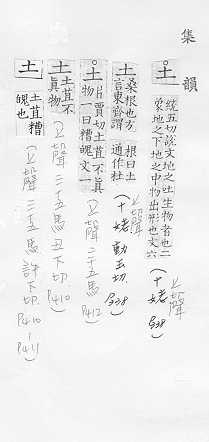 集韻
土 統五切說文地之吐生物者也二象地之下地之中物出形也文六 (上聲 十姥 P338)
土 桑根也方言東齊謂根曰土通作杜 (上聲 十姥 動五切 P338)
土 片賈切土苴不真物一曰糟魄文一 (上聲 三十五馬 P412)
土 土苴不真物 (上聲 三十五馬 丑下切 P410)
土 土苴糟魄也 (上聲 三十五馬 許下切 P410-P411)